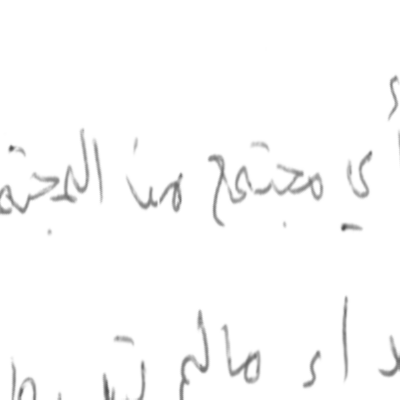 أي مجتمع من المجتم
داء مالم